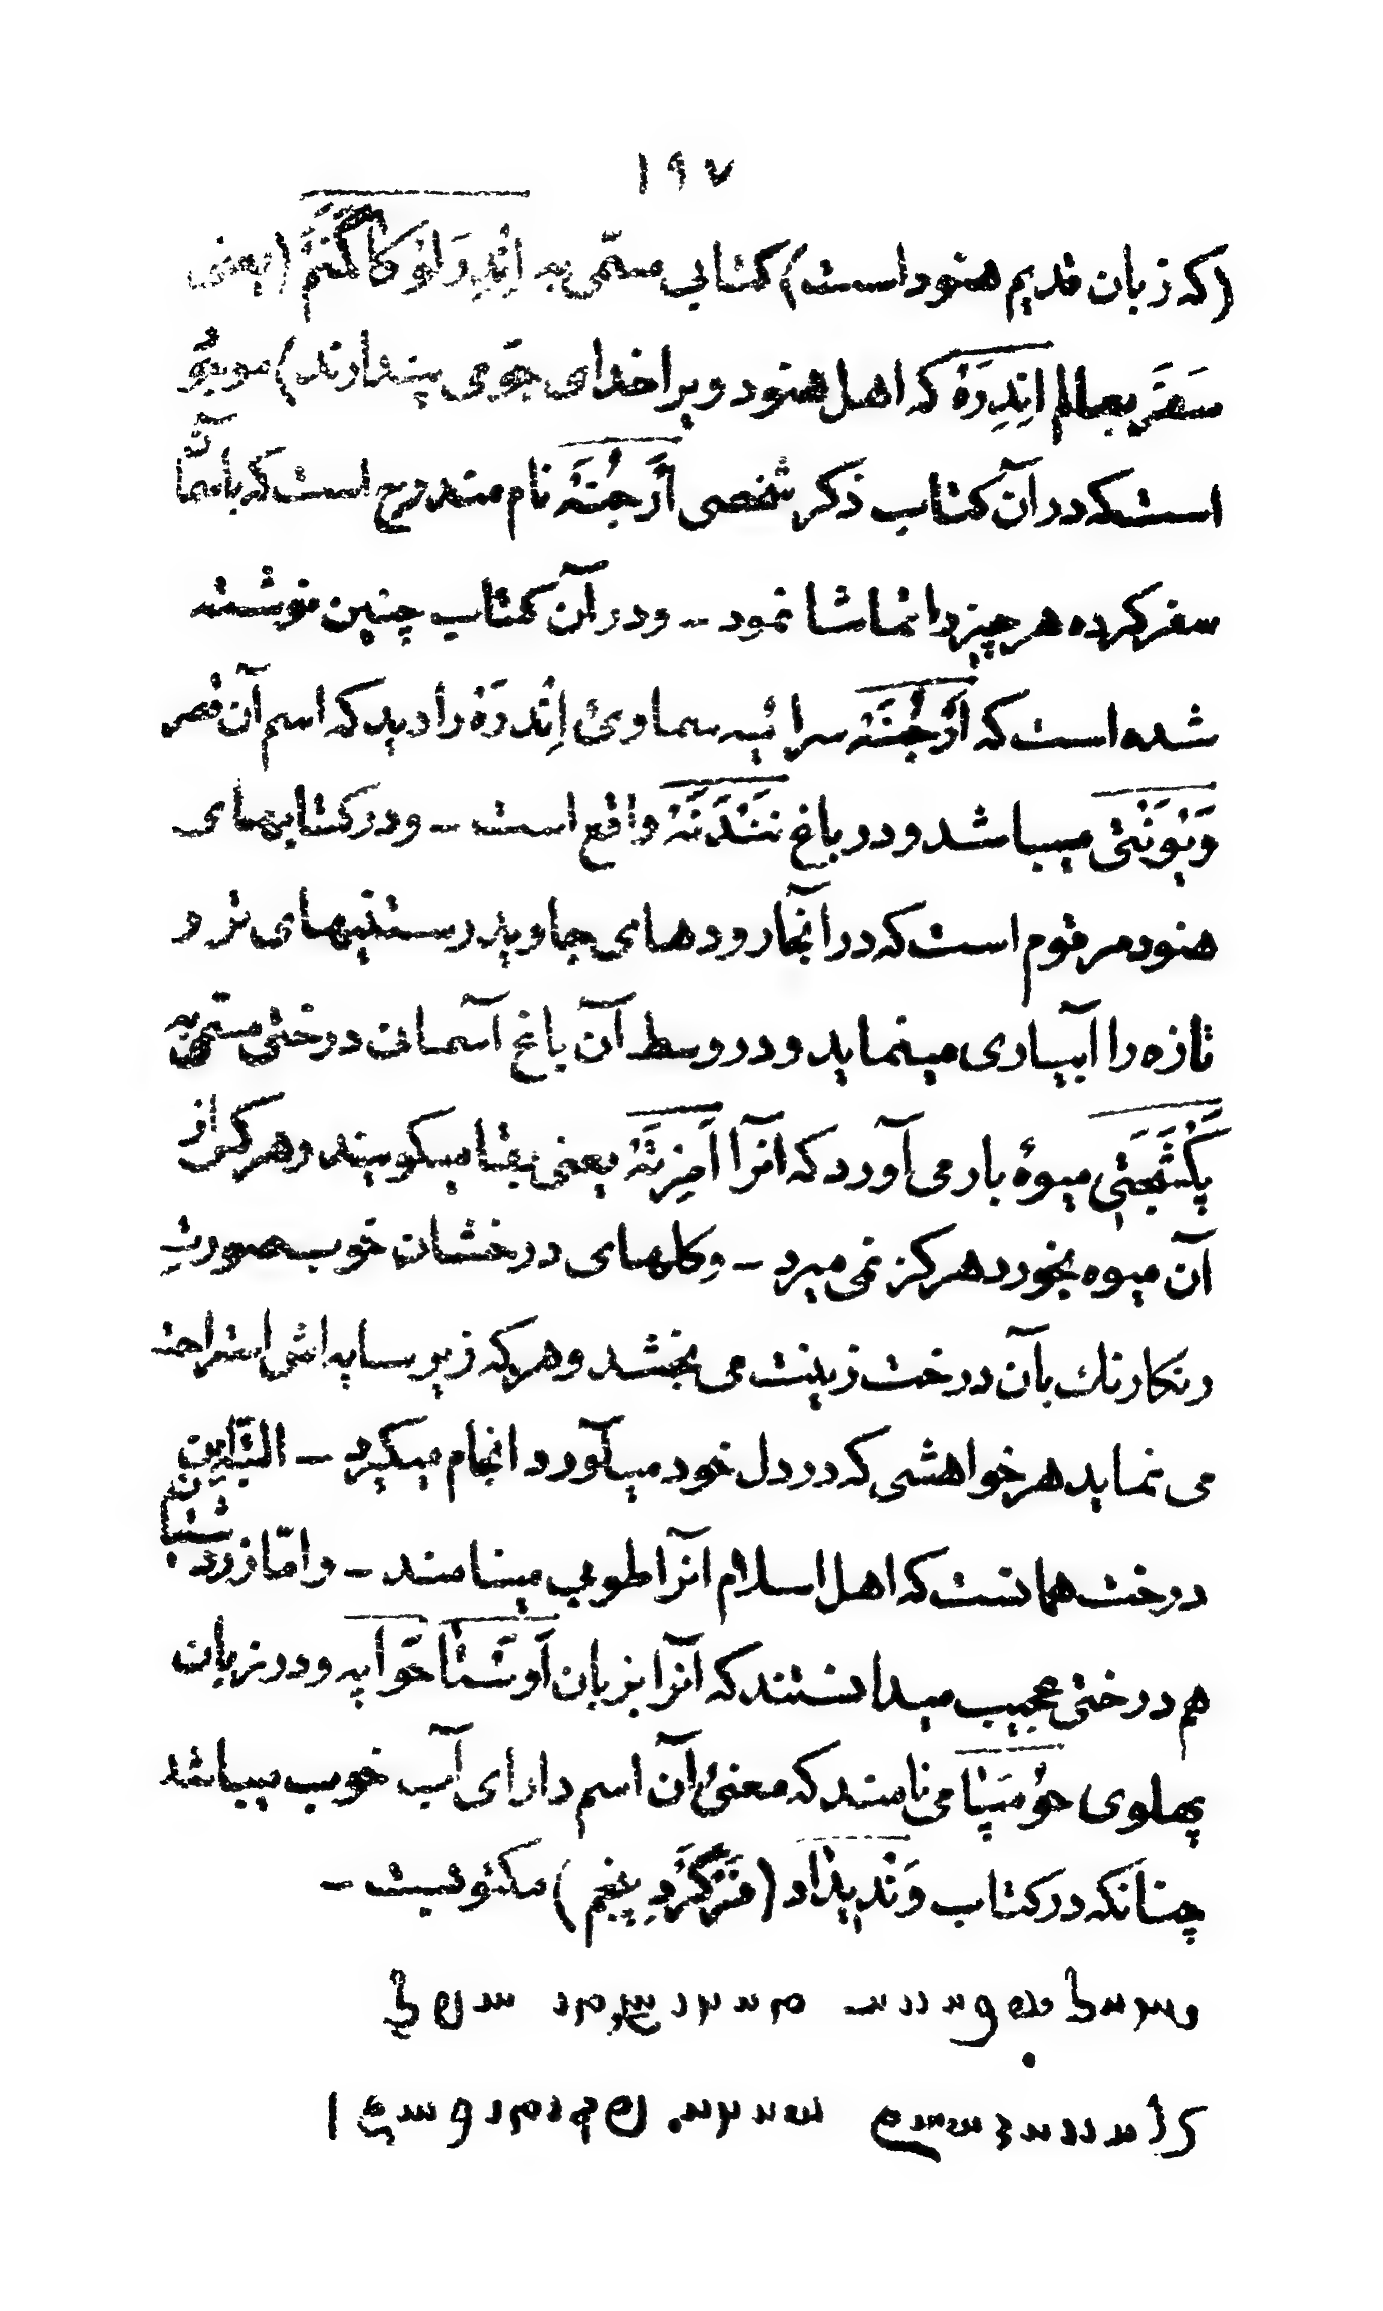 ١٩٧
(که زبان قدیم هنود است) کتابی مسمّی به اِنْدِرَلوُکاگَمَنَمْ (یعنی
سَفَر بعالم اِنِدِرَهْ که اهل هنود ویرا خدای جوّ می پندارند) موجود
است که در آن کتاب ذکر شخصی اَرْجُنَهْ نام مندرج است که بآسمان
سفر کرده هر چیز را تماشا نمود - و در آن کتاب چنین نوشته
شده است که اَرْجُنَهْ سرائیه سماوئ اِنْدرَهْ را دید که اسم آن قصر
وَیوَنْتی میباشد و در باغ نَنْدَنَهْ واقع است - و در کتابهای
هنود مرقوم است که در آنجا رودهای جاوید رستنیهای تر و
تازه را آبیاری مینماید و در وسط آن باغ آسمانی درختی مسمّی به
پَکْشَجَتی میوهٔ بار می آورد که آنرا اَمْرِتَهْ یعنی بقا میگویند و هر که از
آن میوه بخورد هرگز نمی میرد - و گلهای درخشان خوب صورتِ
رنگارنگ بآن درخت زینت می بخشد و هر که زیر سایه اش استراحت
می نماید هر خواهشی که در دل خود میآورد انجام میگیرد - البتّه این
درخت همانست که اهل اسلام آنرا طوبی مینامند - و امّا زردشتیان
هم درختی عجیب میدانستند که آنرا بزبان اَوِسْتا حَوّاپه و در زبان
پهلوی حوُمَپا می نامند که معنیٔ آن اسم دارای آب خوب میباشد
چنانکه در کتاب وَنْدِیداد (فَرْگَرْدِ پنجم) مکتوبست -